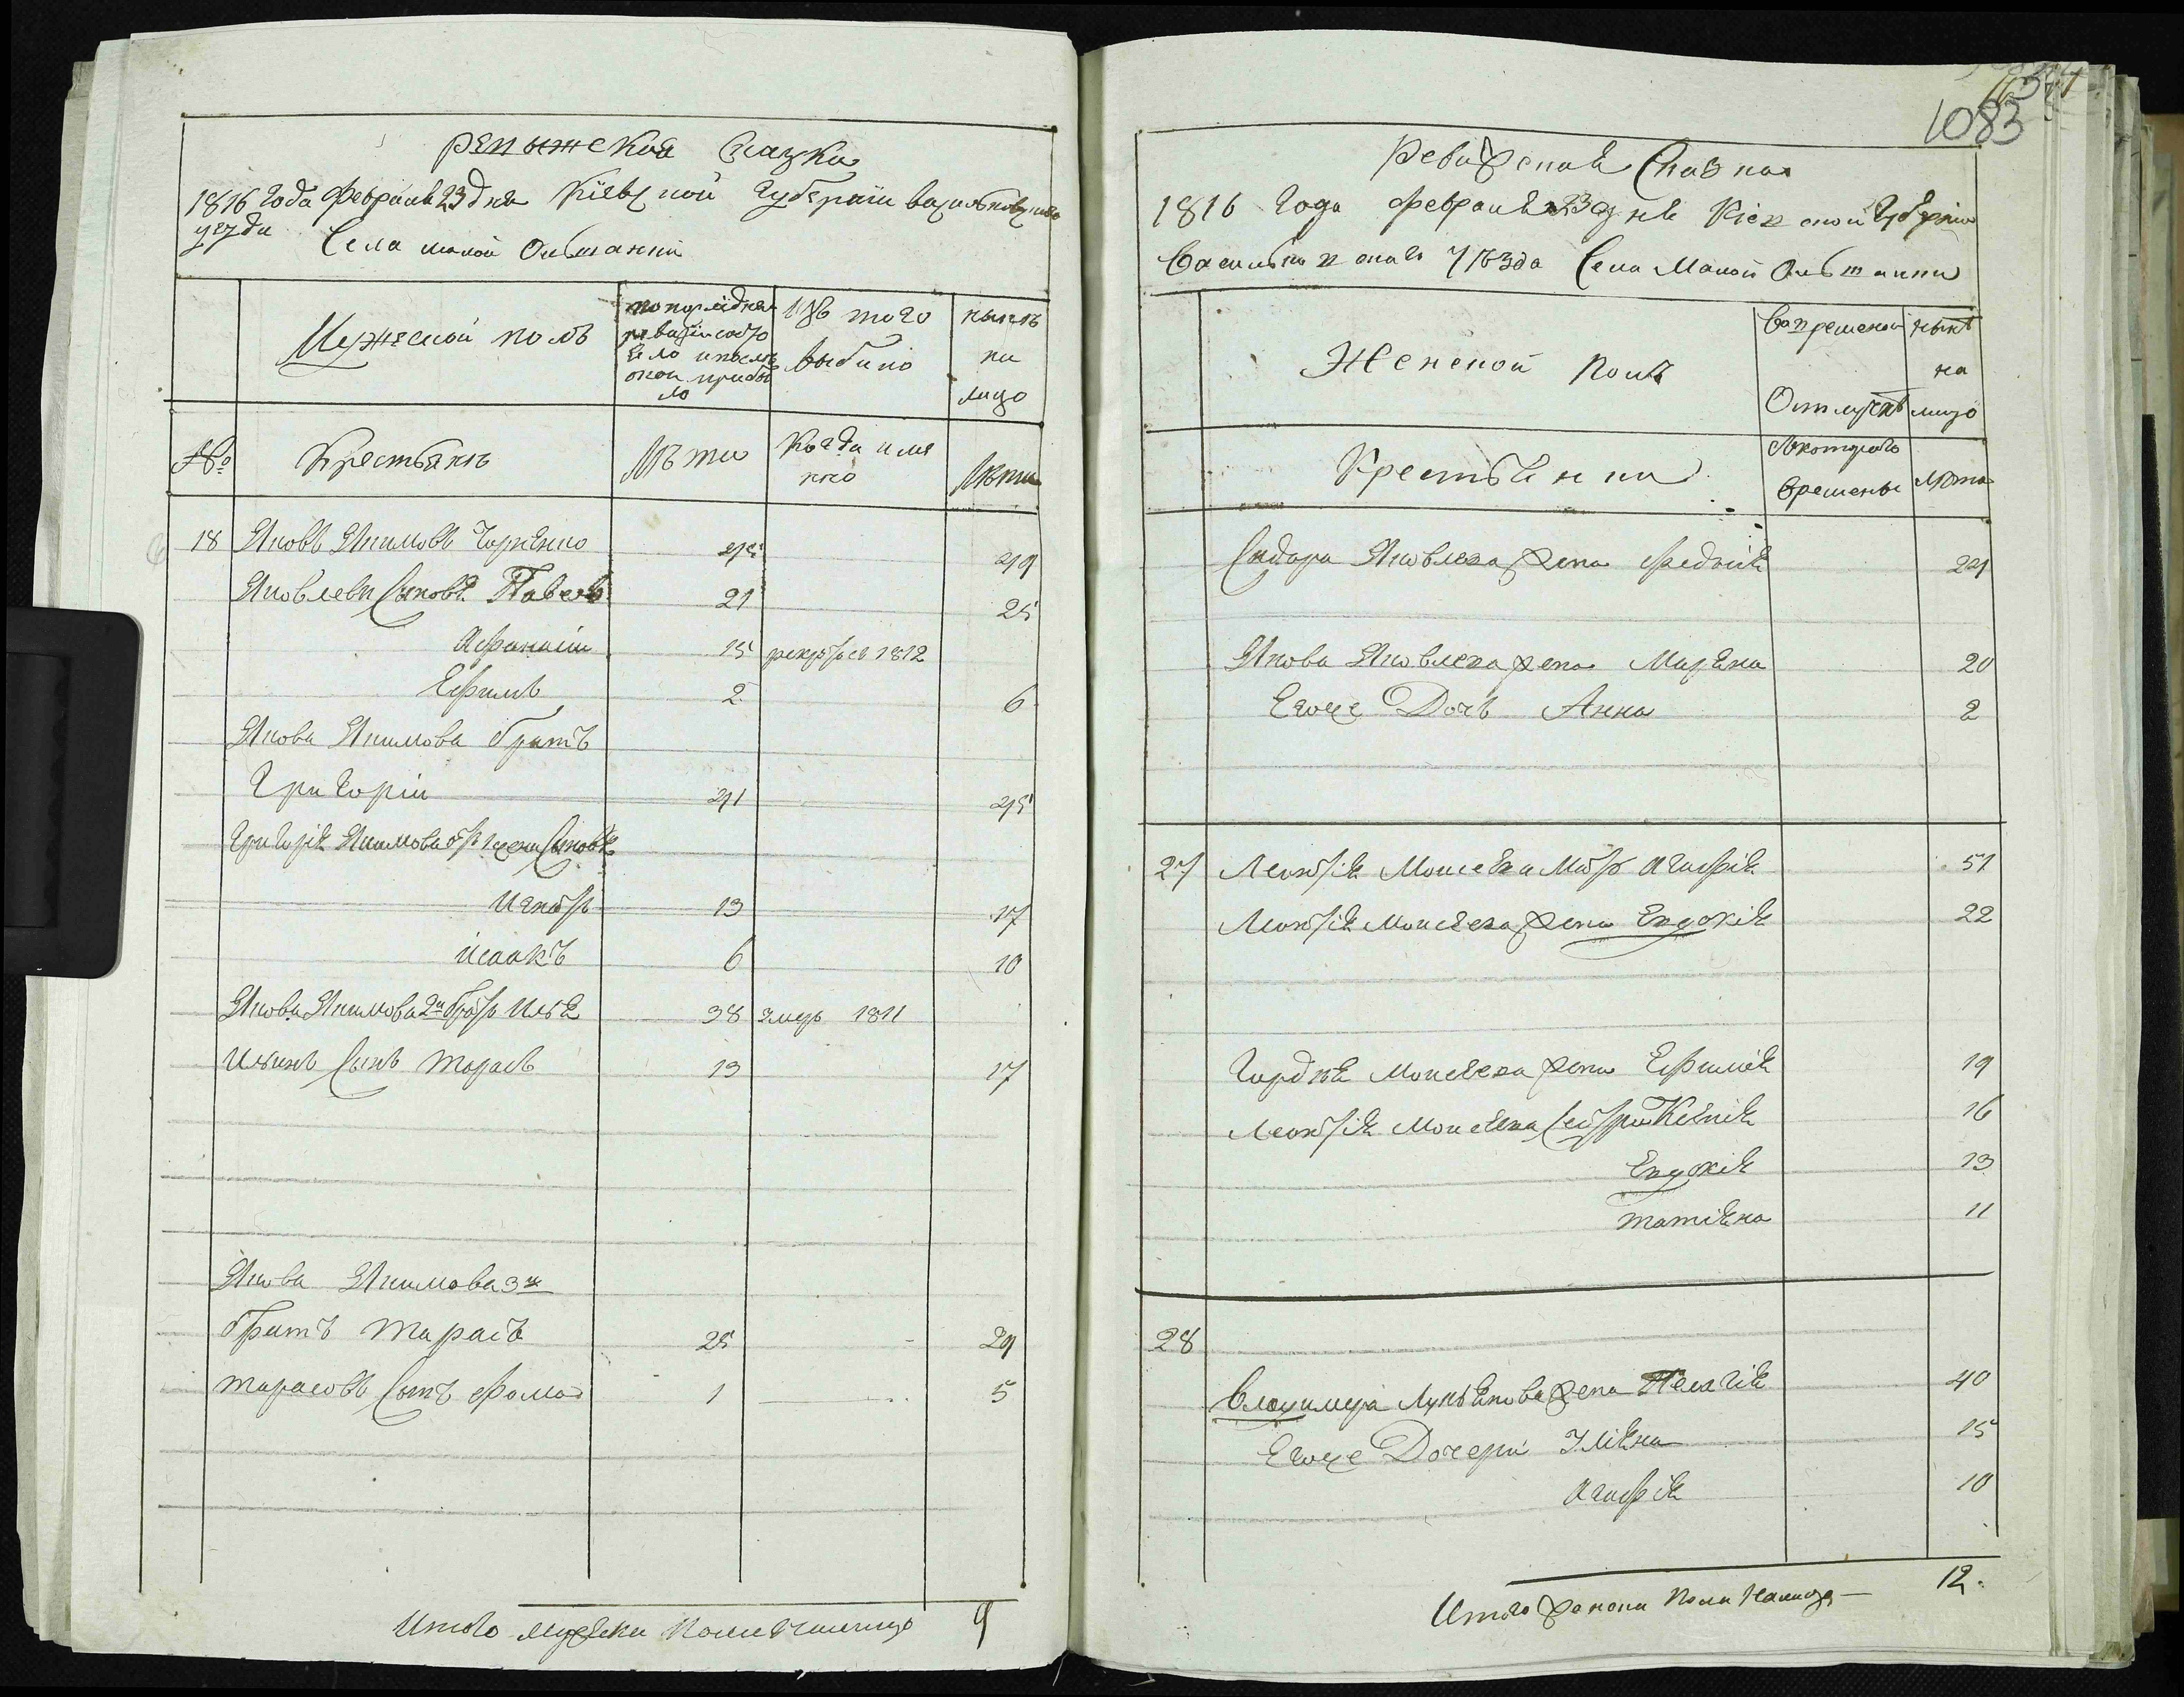 Ревижская Сказка
1816 года Февраля 23 дня Кіевской Губерніи васильковского
уезда Села малой Ольшанки
Мужеской полъ
по последней ревизіи состояло и после оной прибыло
Изъ того выбыло
нынѣ на лицо
№ Крестьянъ
Лѣта
Когда именно
Лѣта
18 Яковъ Якимовъ 45 49
Яковлевы Сыновя Павелъ 21 25
Афанасіи 15 рекрутъ въ 1812
Ефимъ 2 6
Якова Якимова братъ
Григоріи 41 45
Григорія Якимова Сыновя
Игнатъ 13 17
Исаакъ 6 10
Якова Якимова 2й братъ Илья 38 умеръ 1811
Ильинъ Сынъ Тарасъ 13 17
Якова Якимова 3й
братъ Тарасъ 25 29
Тарасовъ Сынъ Фома 1 5
Итого мужска пола на лицо 9
1083
Ревижская Сказка
1816 Года Февраля 23 дня Кіевской Губерніи
Васильковскаго Уѣзда Села Малой Ольшанки
Женской Полъ
Во временной Отлучкѣ
ныне на лицо
Крестьянки
Съ котораго времены
Лѣта
Сидора Яковлева жена Федосія 24
Якова Яковлева жена Марѣна 20
Егоже Дочь Анна 2
27 Леонтія Моисеева Мать Агафія 51
Леонтія Моисеева жена Евдокія 22
Гордѣя Моисеева жена Ефимія 19
Леонтія Моисеева Сестры Ксенія 16
Евдокія 13
Татіяна 11
28
Владимера Лукьянова жена Пелагія 40
Егоже Дочери Уліяна 15
Агафія 10
Итого женска Пола Налицо 12.